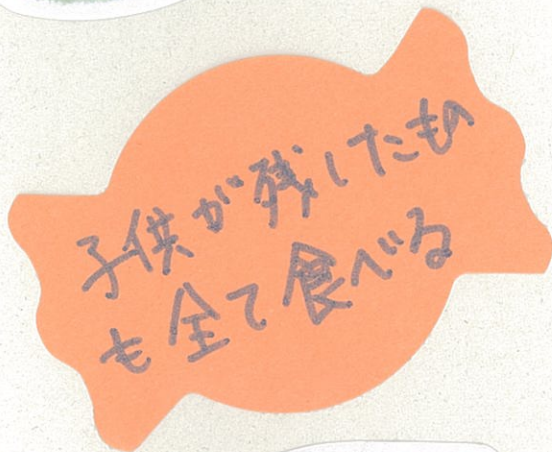 子供が残したもの
も全て食べる